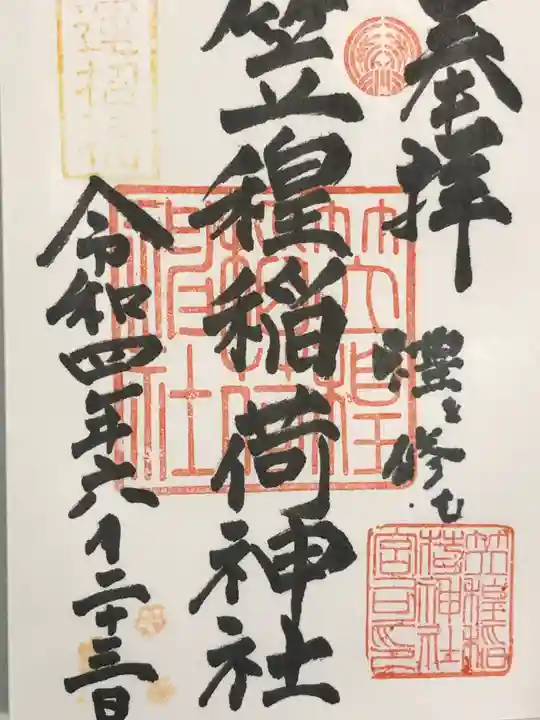 参拝
禮を修む
笠䅣稲荷神社
令和四年六月二十三日
開運招福
笠䅣稲荷神社
笠䅣稲荷神社宮司之印